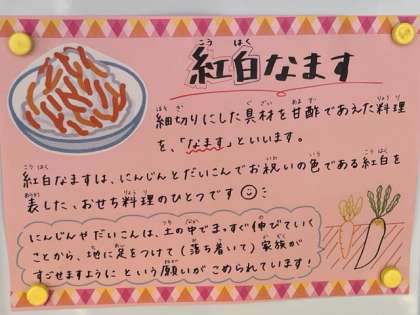 紅白なます
細切りにした具材を甘酢であえた料理
を、「なます」といいます。
紅白なますは、にんじんとだいこんでお祝いの色である紅白を
表した、おせち料理のひとつです
にんじんやだいこんは、土の中でまっすぐ伸びていく
ことから、地に足をつけて(落ち着いて)家族が
すごせますように という願いが こめられています!